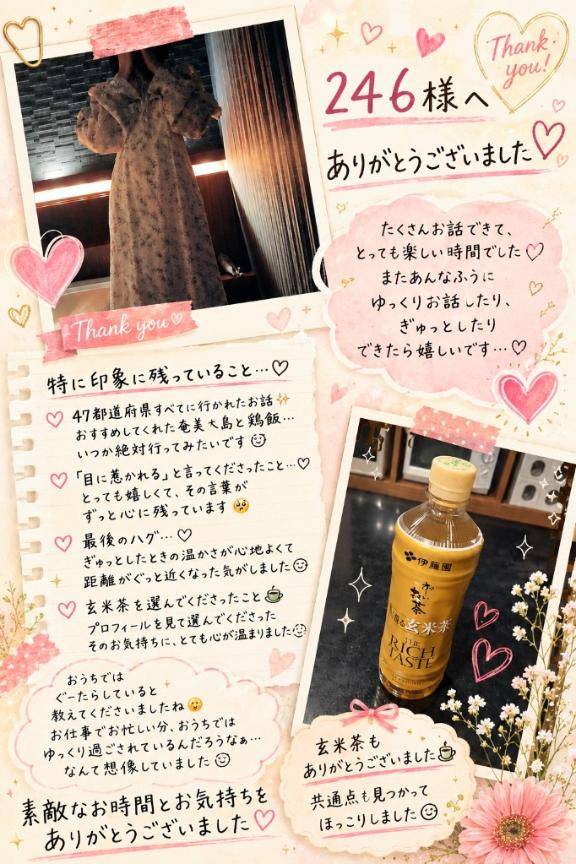 Thank you!
246様へ
ありがとうございました
たくさんお話できて、
とっても楽しい時間でした
またあんなふうに
ゆっくりお話したり、
ぎゅっとしたり
できたら嬉しいです…
Thank you
特に印象に残っていること…
47都道府県すべてに行かれたお話
おすすめしてくれた奄美大島と鶏飯…
いつか絶対行ってみたいです
「目に惹かれる」と言ってくださったこと…
とっても嬉しくて、その言葉が
ずっと心に残っています
最後のハグ…
ぎゅっとしたときの温かさが心地よくて
距離がぐっと近くなった気がしました
玄米茶を選んでくださったこと
プロフィールを見て選んでくださった
そのお気持ちに、とても心が温まりました
伊藤園
お〜いお茶
玄米茶
THE
RICH
TASTE
おうちでは
ぐーたらしていると
教えてくださいましたね
お仕事でお忙しい分、おうちでは
ゆっくり過ごされているんだろうなぁ…
なんて想像していました
玄米茶も
ありがとうございました
共通点も見つかって
ほっこりしました
素敵なお時間とお気持ちを
ありがとうございました